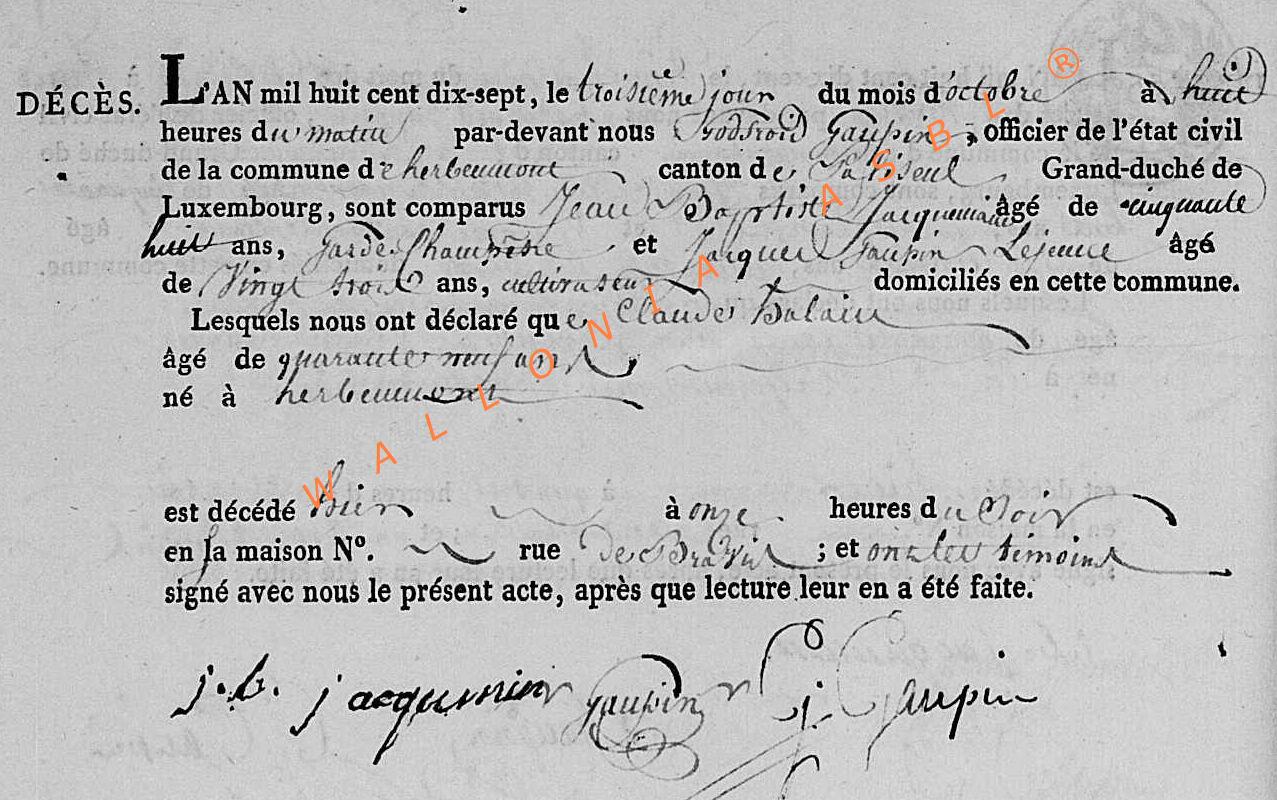 DÉCÈS. L'AN mil huit cent dix-sept, le troisième jour du mois d'octobre à huit
heures du matin par-devant nous Godfroid Gaupin, officier de l'état civil
de la commune de herbeumont canton de Paliseul Grand-duché de
Luxembourg, sont comparus Jean Baptiste Jacquemin âgé de cinquante
huit ans, garde Champêtre et Jacques Gaupin Lejeune âgé
de Vingt trois ans, cultivateur domiciliés en cette commune.
Lesquels nous ont déclaré que Claude
âgé de quarante neuf ans
né à herbeumont
est décédé hier à onze heures du Soir
en la maison N°. rue ; et ont les témoins
signé avec nous le présent acte, après que lecture leur en a été faite.
j. b. jacquemin Gaupin j. Gaupin
WALLONIA ASBL ®